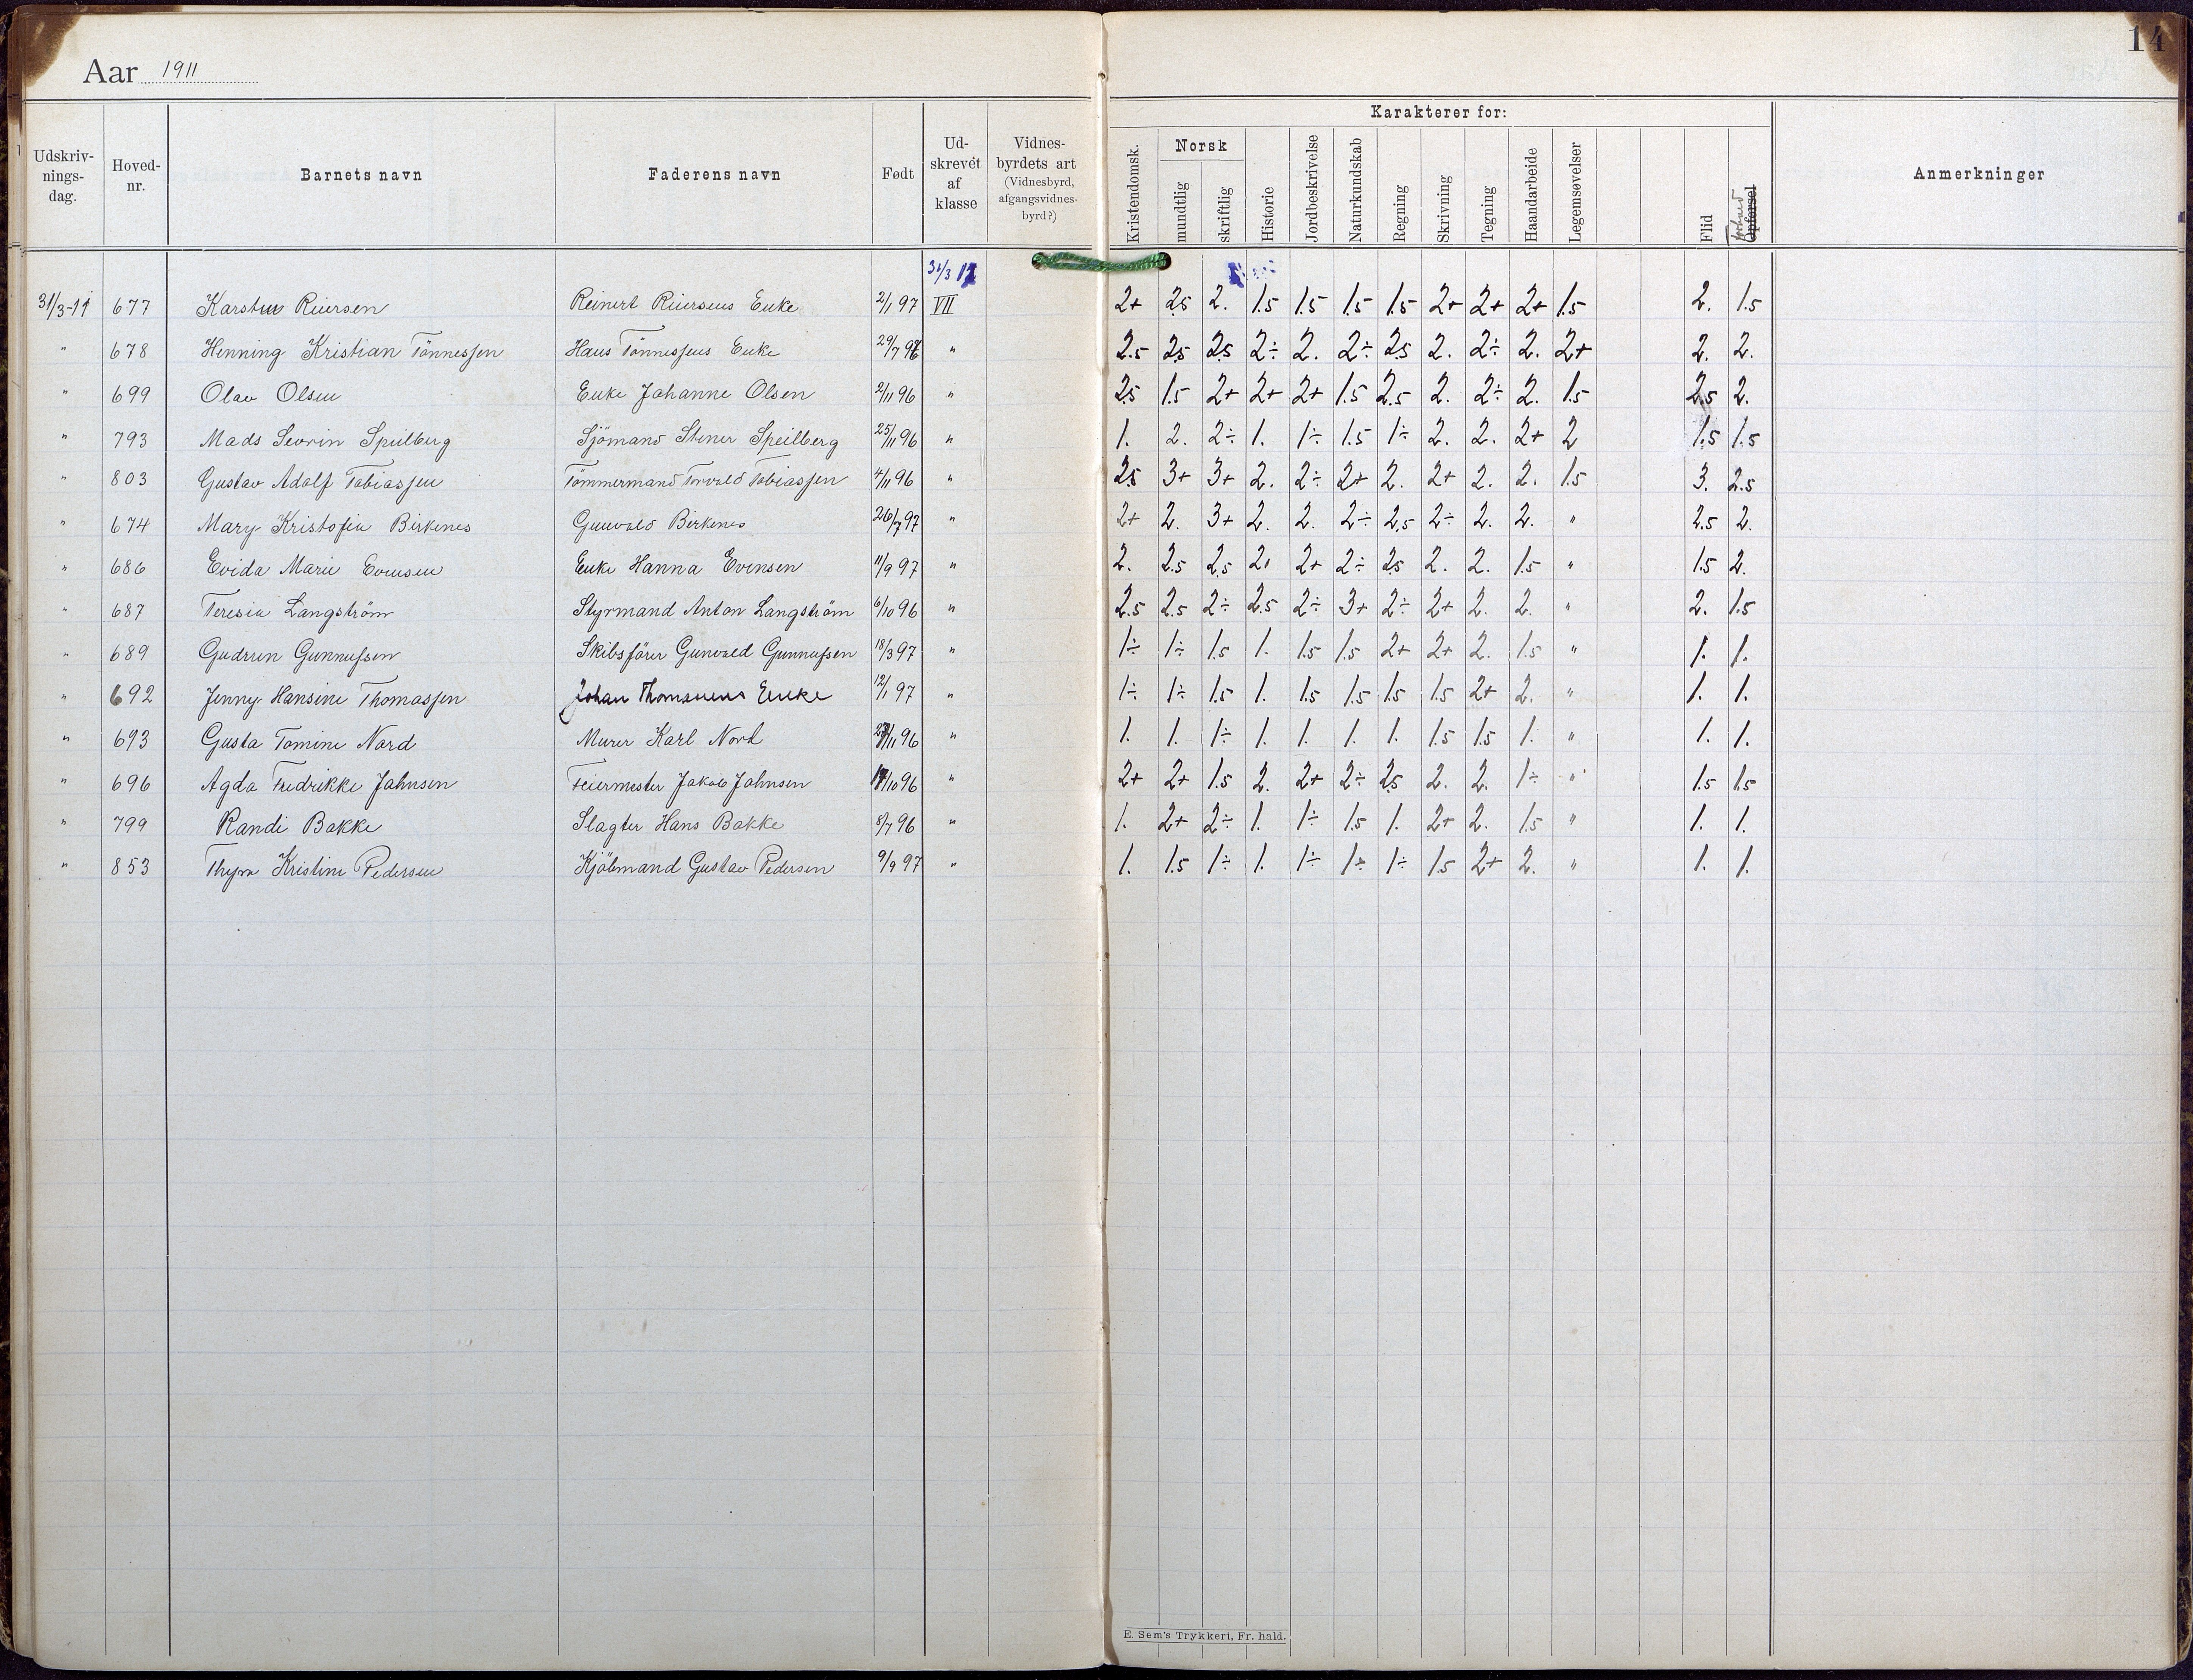 Aar 1911
14
Karakterer for:
Udskrivningsdag. Hovednr. Barnets navn Faderens navn Født Udskrevet af klasse Vidnesbyrdets art (Vidnesbyrd, afgangsvidnesbyrd?) Kristendomsk. Norsk mundtlig skriftlig Historie Jordbeskrivelse Naturkundskab Regning Skrivning Tegning Haandarbeide Legemsøvelser Flid Opførsel Anmerkninger
31/3 11
31/3-11 677 Karsten Reiersen Reinert Reiersens Enke 2/1 97 VII 2+ 2.5 2. 1.5 1.5 1.5 1.5 2+ 2+ 2+ 1.5 2. 1.5
" 678 Henning Kristian Tönnessen Hans Tönnessens Enke 29/7 96 " 2.5 2.5 2.5 2÷ 2. 2÷ 2.5 2. 2÷ 2. 2+ 2. 2.
" 699 Olav Olsen Enke Johanne Olsen 2/11 96 " 2.5 1.5 2+ 2+ 2+ 1.5 2.5 2. 2÷ 2. 1.5 2.5 2.
" 793 Mads Sevrin Speilberg Sjömand Stener Speilberg 25/11 96 " 1. 2. 2÷ 1. 1÷ 1.5 1÷ 2. 2. 2+ 2 1.5 1.5
" 803 Gustav Adolf Tobiassen Tömmermand Torvald Tobiassen 4/11 96 " 2.5 3+ 3+ 2. 2÷ 2+ 2. 2+ 2. 2. 1.5 3. 2.5
" 674 Mary Kristofia Birkenes Gunvald Birkenes 26/7 97 " 2+ 2. 3+ 2. 2. 2÷ 2.5 2÷ 2. 2. " 2.5 2.
" 686 Evida Marie Evensen Enke Hanna Evensen 11/9 97 " 2. 2.5 2.5 2. 2+ 2÷ 2.5 2. 2. 1.5 " 1.5 2.
" 687 Teresia Langström Styrmand Anton Langström 6/10 96 " 2.5 2.5 2÷ 2.5 2÷ 3+ 2÷ 2+ 2. 2. " 2. 1.5
" 689 Gudrun Gunnufsen Skibsförer Gunvald Gunnufsen 18/3 97 " 1÷ 1÷ 1.5 1. 1.5 1.5 2+ 2+ 2. 1.5 " 1. 1.
" 692 Jenny Hansine Thomassen Johan Thomassens Enke 12/1 97 " 1÷ 1÷ 1.5 1. 1.5 1.5 1.5 1.5 2+ 2. " 1. 1.
" 693 Gusta Tomine Nord Murer Karl Nord /11 96 " 1. 1. 1÷ 1. 1. 1. 1. 1.5 1.5 1. " 1. 1.
" 696 Agda Fredrikke Jahnsen Feiermester Jakob Jahnsen /10 96 " 2+ 2+ 1.5 2. 2+ 2÷ 2.5 2. 2. 1÷ " 1.5 1.5
" 799 Randi Bakke Slagter Hans Bakke 8/7 96 " 1. 2+ 2÷ 1. 1÷ 1.5 1. 2+ 2. 1.5 " 1. 1.
" 853 Thyra Kristine Pedersen Kjöbmand Gustav Pedersen 9/9 97 " 1. 1.5 1÷ 1. 1÷ 1÷ 1÷ 1.5 2+ 2. " 1. 1.
E. Sem's Trykkeri, Fr. hald.